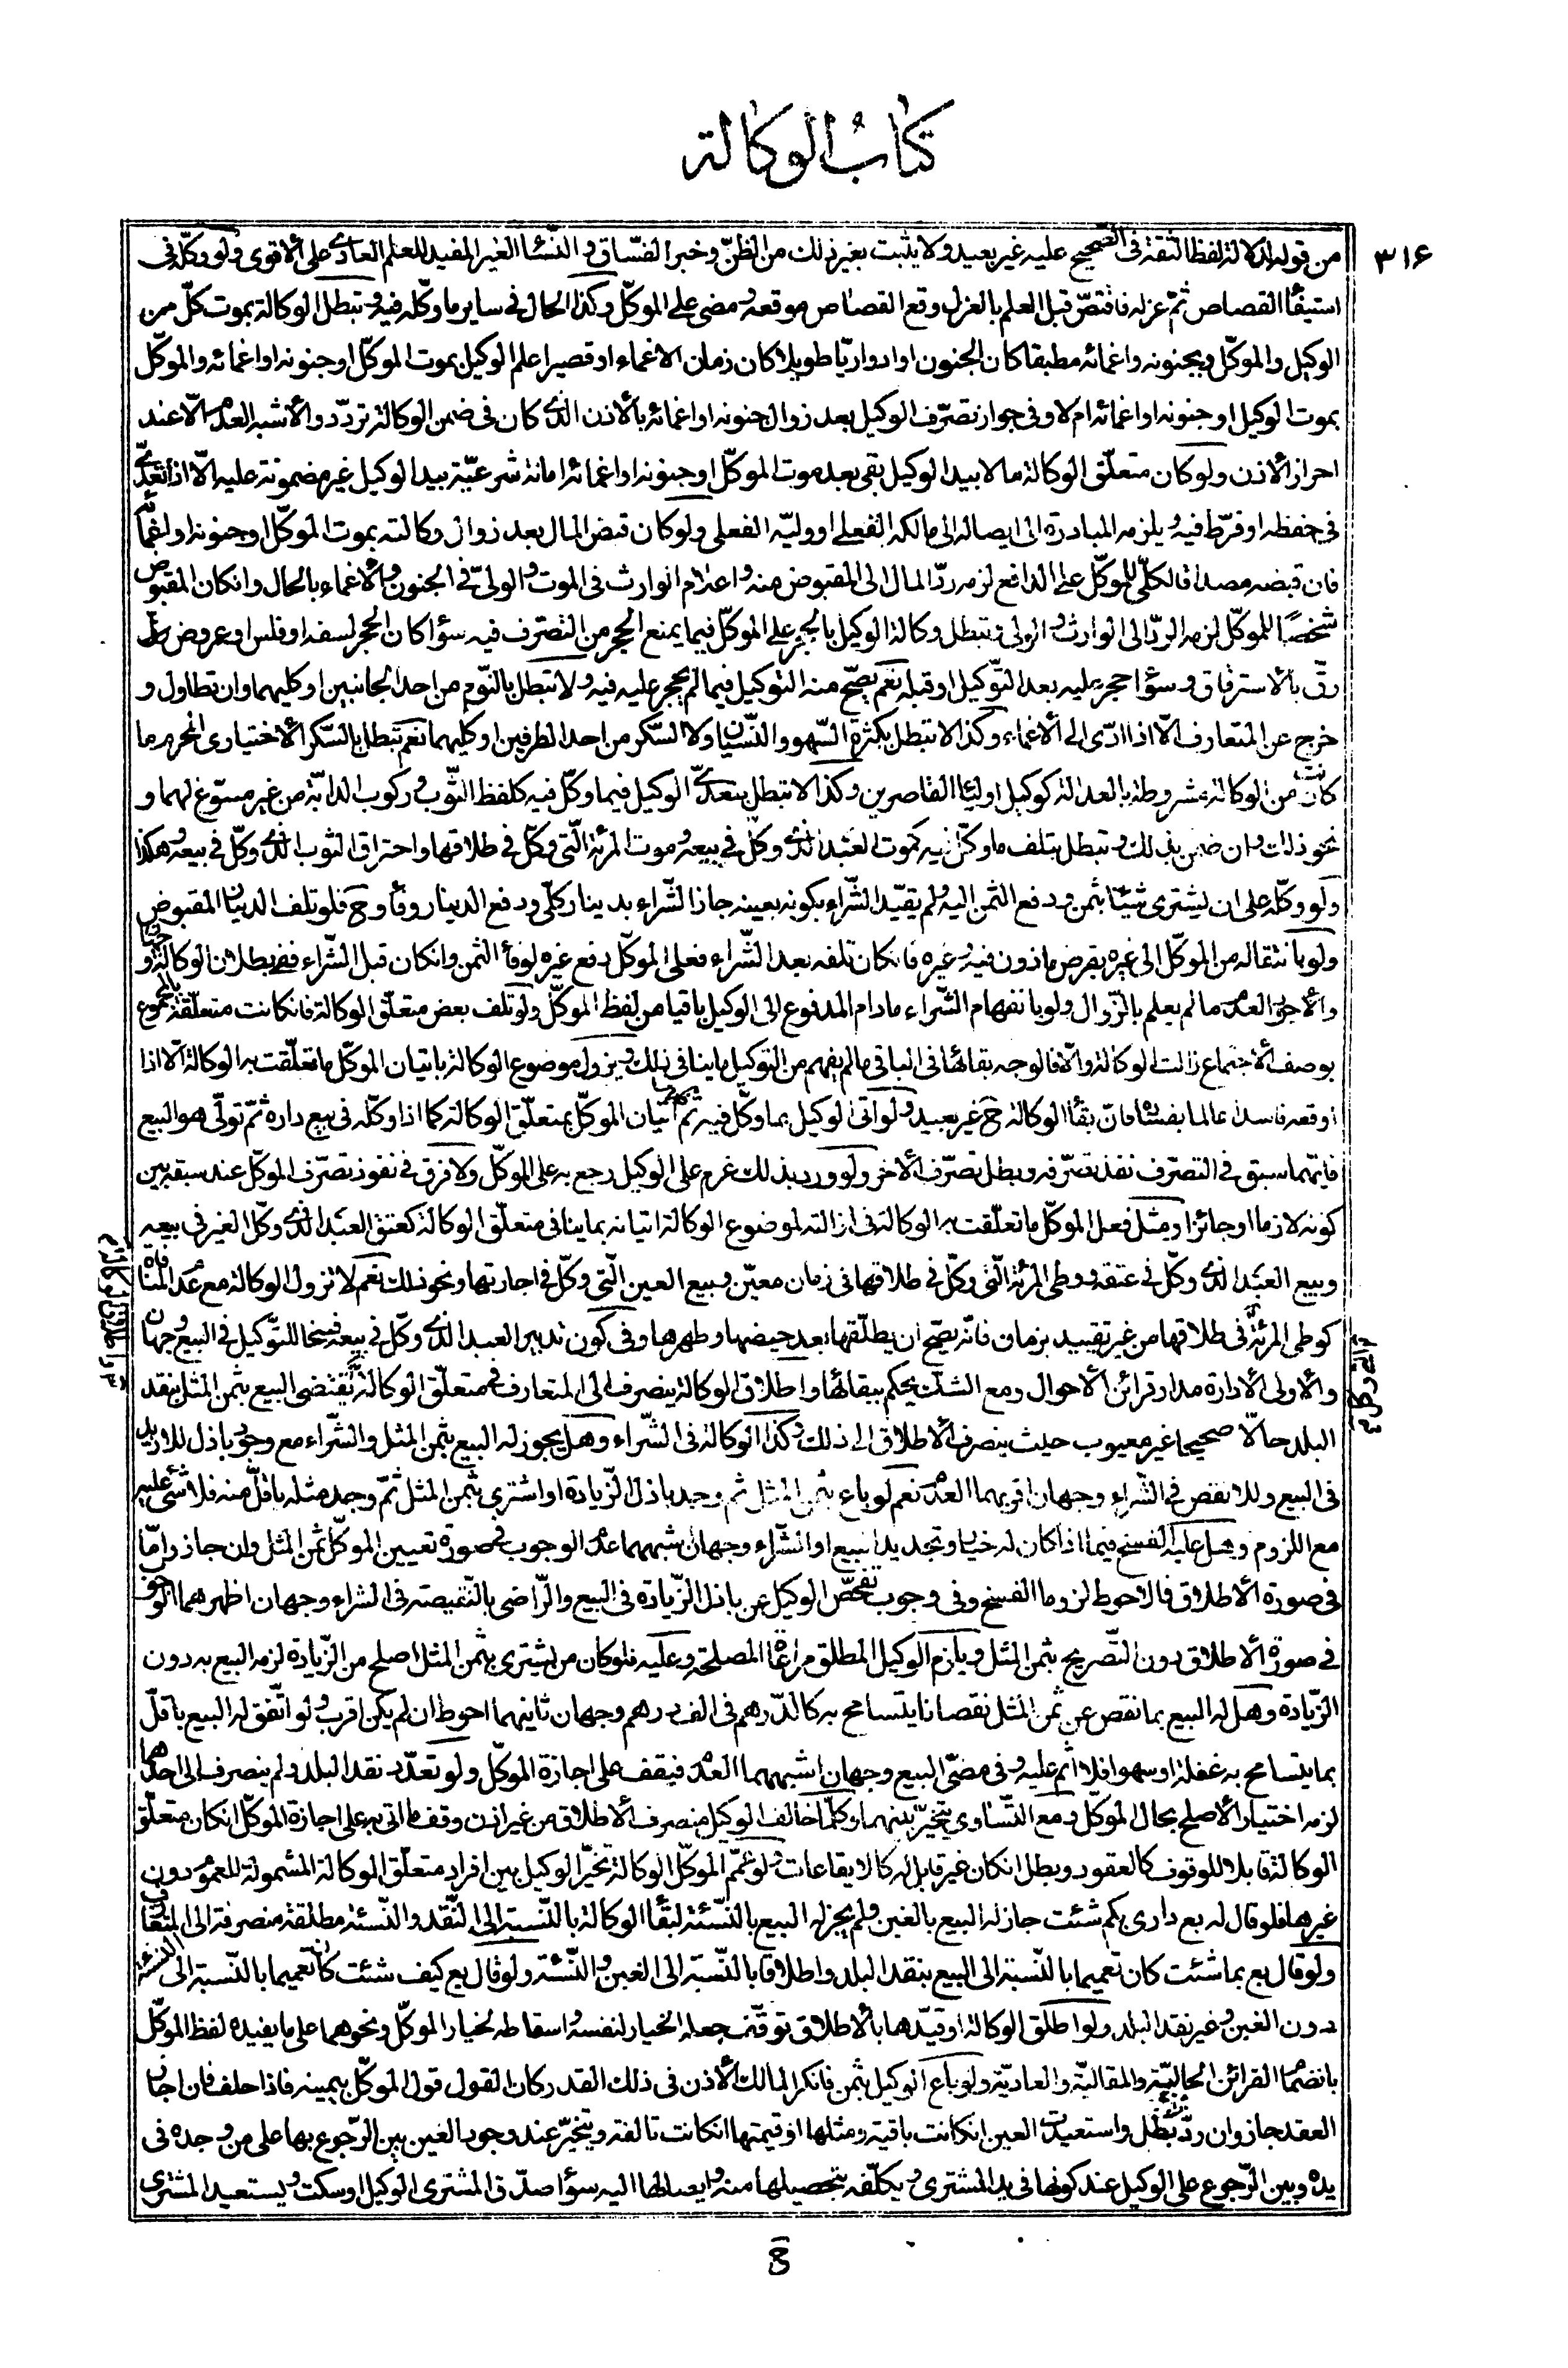 كتاب الوكالة
٣١٤
من قوله لدلالة لفظ الثقة في الصحيح عليه غير بعيد ولا يثبت بغير ذلك من الظنّ وخبر الفسّاق و النّساء الغير المفيد للعلم العادي على الأقوى ولو وكّله في
استيفاء القصاص ثمّ عزله فاقتصّ قبل العلم بالعزل وقع القصاص موقعه ومضى على الموكّل وكذا الحال في ساير ما وكّله فيه وتبطل الوكالة بموت كلّ من
الوكيل والموكّل وبجنونه واغمائه مطبقا كان الجنون او ادواريّا طويلا كان زمان الاغماء او قصيرا علم الوكيل بموت الموكّل او جنونه او اغمائه والموكّل
بموت الوكيل او جنونه او اغمائه ام لا وفي جواز تصرّف الوكيل بعد زوال جنونه او اغمائه بالأذن الذي كان في ضمن الوكالة تردّد والأشبه العدم الّا عند
احراز الأذن ولو كان متعلّق الوكالة مالا بيد الوكيل بقى بعد موت الموكّل او جنونه او اغمائه امانة شرعيّة بيد الوكيل غير مضمونة عليه الّا اذا تعدّى
في حفظه او فرّط فيه ويلزمه المبادرة الى ايصاله الى مالكه الفعلي او وليّه الفعلي ولو كان قبض المال بعد زوال وكالته بموت الموكّل او جنونه او اغمائه
فان قبضه مصداقا لكلّي للموكّل على الدافع لزمه ردّ المال الى المقبوض منه واعلام الوارث في الموت والوليّ في الجنون والأغماء بالحال وانكان المقبوض
شخصيّا للموكّل لزمه الردّ الى الوارث والولى وتبطل وكالة الوكيل بالحجر على الموكّل فيما يمنع الحجر من التصرّف فيه سواء كان الحجر لسفه او فلس او عروض
رقّ بالأسترقاق وسواء حجر عليه بعد التّوكيل او قبله نعم يصحّ منه التوكيل فيما لم يحجر عليه فيه ولا تبطل بالنّوم من احد الجانبين او كليهما وان تطاول و
خرج عن المتعارف الّا اذا ادّى الى الأغماء وكذا لا تبطل بكثرة السّهو والنّسيان ولا السّكر من احد الطرفين او كليهما نعم تبطل بالسّكر الأختياري المحرم ما
كانت من الوكالة مشروطة بالعدالة كوكيل اولياء القاصرين وكذا لا تبطل بتعدّي الوكيل فيما وكّل فيه كلفظ الثّوب وركوب الدابّة من غير مسوّغ لهما و
نحو ذلك وان ضمن بذلك وتبطل بتلف ما وكّل فيه كموت العبد الذي وكّل في بيعه وموت المرئة الّتي وكّل في طلاقها واحتراق الثوب الذي وكّل في بيعه وهكذا
ولو وكّله على ان يشترى شيئا بثمن ودفع الثمن اليه ولم يقيّد الشّراء بكونه بعينه جاز الشّراء بدينار كلّي ودفع الدينار وفاء وح فلو تلف الدينار المقبوض
ولو بانتقاله من الموكّل الى غيره بقرض ماذون فيه وغيره فانكان تلفه بعد الشّراء فعلى الموكّل دفع غيره لوفاء الثمن وانكان قبل الشّراء ففي بطلان الوكالة وجهان
والأجود العدم ما لم يعلم بالزّوال ولو بانفهام الشّراء مادام المدفوع الى الوكيل باقيا من لفظ الموكّل ولو تلف بعض متعلّق الوكالة فانكانت متعلّقة بالمجموع
بوصف الأجتماع زالت الوكالة والّا فالوجه بقائها في الباقي ما لم يفهم من التوكيل ما ينافي ذلك ويزول موضوع الوكالة باتيان الموكّل ما تعلّقت به الوكالة الّا اذا
اوقعه فاسدا عالما بفساده فانّ بقاء الوكالة ح غير بعيد ولو اتى الوكيل بما وكّل فيه ثم اتيان الموكّل بمتعلّق الوكالة كما اذا وكّله في بيع داره ثمّ تولّى هو البيع
فايّهما سبق في التصرّف نفذ تصرّفه وبطل تصرّف الأخر ولو ورد بذلك غرم على الوكيل رجع به على الموكّل ولا فرق في نفوذ تصرّف الموكّل عند سبقه بين
كونه لازما او جائزا ومثل فعل الموكّل ما تعلّقت به الوكالة في ازالته لموضوع الوكالة اتيانه بما ينافى متعلّق الوكالة كعتق العبد الذي وكّل الغير في بيعه
وبيع العبد الذي وكّل في عتقه ووطى المرئة الّتي وكّل في طلاقها في زمان معيّن وبيع العين الّتي وكّل في اجارتها ونحو ذلك نعم لا تزول الوكالة مع عدم المنافاة
كوطى المرئة في طلاقها من غير تقييد بزمان فانّه يصحّ ان يطلّقها بعد حيضها وطهرها وفي كون تدبير العبد الذي وكّل في بيعه فسخا للتّوكيل في البيع وجهان
والأولى الأدارة مدار قرائن الأحوال ومع الشكّ يحكم ببقائها واطلاق الوكالة ينصرف الى المتعارف في متعلّق الوكالة فيقتضى البيع بثمن المثل بنقد
البلد حالّا صحيحا غير معيوب حيث ينصرف الأطلاق الى ذلك وكذا الوكالة في الشّراء وهل يجوز له البيع بثمن المثل والشّراء مع وجود باذل للازيد
في البيع وللانقص في الشّراء وجهان اقربهما العدم نعم لو باع بثمن المثل ثم وجد باذل الزّيادة او اشترى بثمن المثل ثمّ وجد مثله باقلّ منه فلا شئ عليه
مع اللزوم وهل عليه الفسخ فيما اذا كان له خيار وتجديد البيع او الشّراء وجهان اشبههما عدم الوجوب في صورة تعيين الموكّل ثمن المثل وان جاز وامّا
في صورة الأطلاق فالاحوط لزوما الفسخ وفي وجوب تفحّص الوكيل عن باذل الزّيادة في البيع والرّاضى بالنّقيصة في الشراء وجهان اظهرهما الوجوب
في صورة الأطلاق دون التّصريح بثمن المثل ويلزم الوكيل المطلق مراعاة المصلحة وعليه فلو كان من يشترى بثمن المثل اصلح من الزّيادة لزمه البيع به دون
الزّيادة وهل له البيع بما نقص عن ثمن المثل نقصانا يتسامح به كالدّرهم في الف درهم وجهان ثانيهما احوط ان لم يكن اقرب ولو اتّفق له البيع باقلّ
بما يتسامح به غفلة او سهوا فلا اثم عليه وفي مضىّ البيع وجهان اشبههما العدم فيقف على اجازة الموكّل ولو تعدّد نقد البلد ولم ينصرف الى احدهما
لزمه اختيار الأصلح بحال الموكّل ومع التّساوي يتخيّر بينهما وكلّما خالف الوكيل منصرف الأطلاق من غير اذن وقف ما اتى به على اجازة الموكّل انكان متعلّق
الوكالة قابلا للوقوف كالعقود وبطل انكان غير قابل له كالايقاعات ولو عمّم الموكّل الوكالة تخيّر الوكيل بين افراد متعلّق الوكالة المشمولة للعموم دون
غيرها فلو قال له بع داري بكم شئت جاز له البيع بالغبن ولم يجز له البيع بالنّسئة لبقاء الوكالة بالنّسبة الى النّقد والنّسئة مطلقة منصرفة الى المتعارف
ولو قال بع بما شئت كان تعميما بالنّسبة الى البيع بنقد البلد واطلاقا بالنّسبة الى الغبن والنّسئة ولو قال بع كيف شئت كان تعميما بالنّسبة الى النسئة
دون الغبن وغير نقد البلد ولو اطلق الوكالة او قيّدها بالأطلاق توقّف جعله الخيار لنفسه واسقاطه لخيار الموكّل ونحوهما على ما يفيده لفظ الموكّل
بانضمام القرائن الحاليّة والمقاليّة والعاديّة ولو باع الوكيل بثمن فانكر المالك الأذن في ذلك القدر كان القول قول الموكّل بيمينه فاذا حلف فان اجاز
العقد جاز وان ردّ بطل واستعيدت العين انكانت باقية ومثلها او قيمتها انكانت تالفة ويتخيّر عند وجود العين بين الرّجوع بها على من وجده في
يده وبين الرّجوع على الوكيل عند كونها في يد المشترى ويكلّفه بتحصيلها منه وايصالها اليه سواء صدّق المشترى الوكيل او سكت ويستعيد المشترى